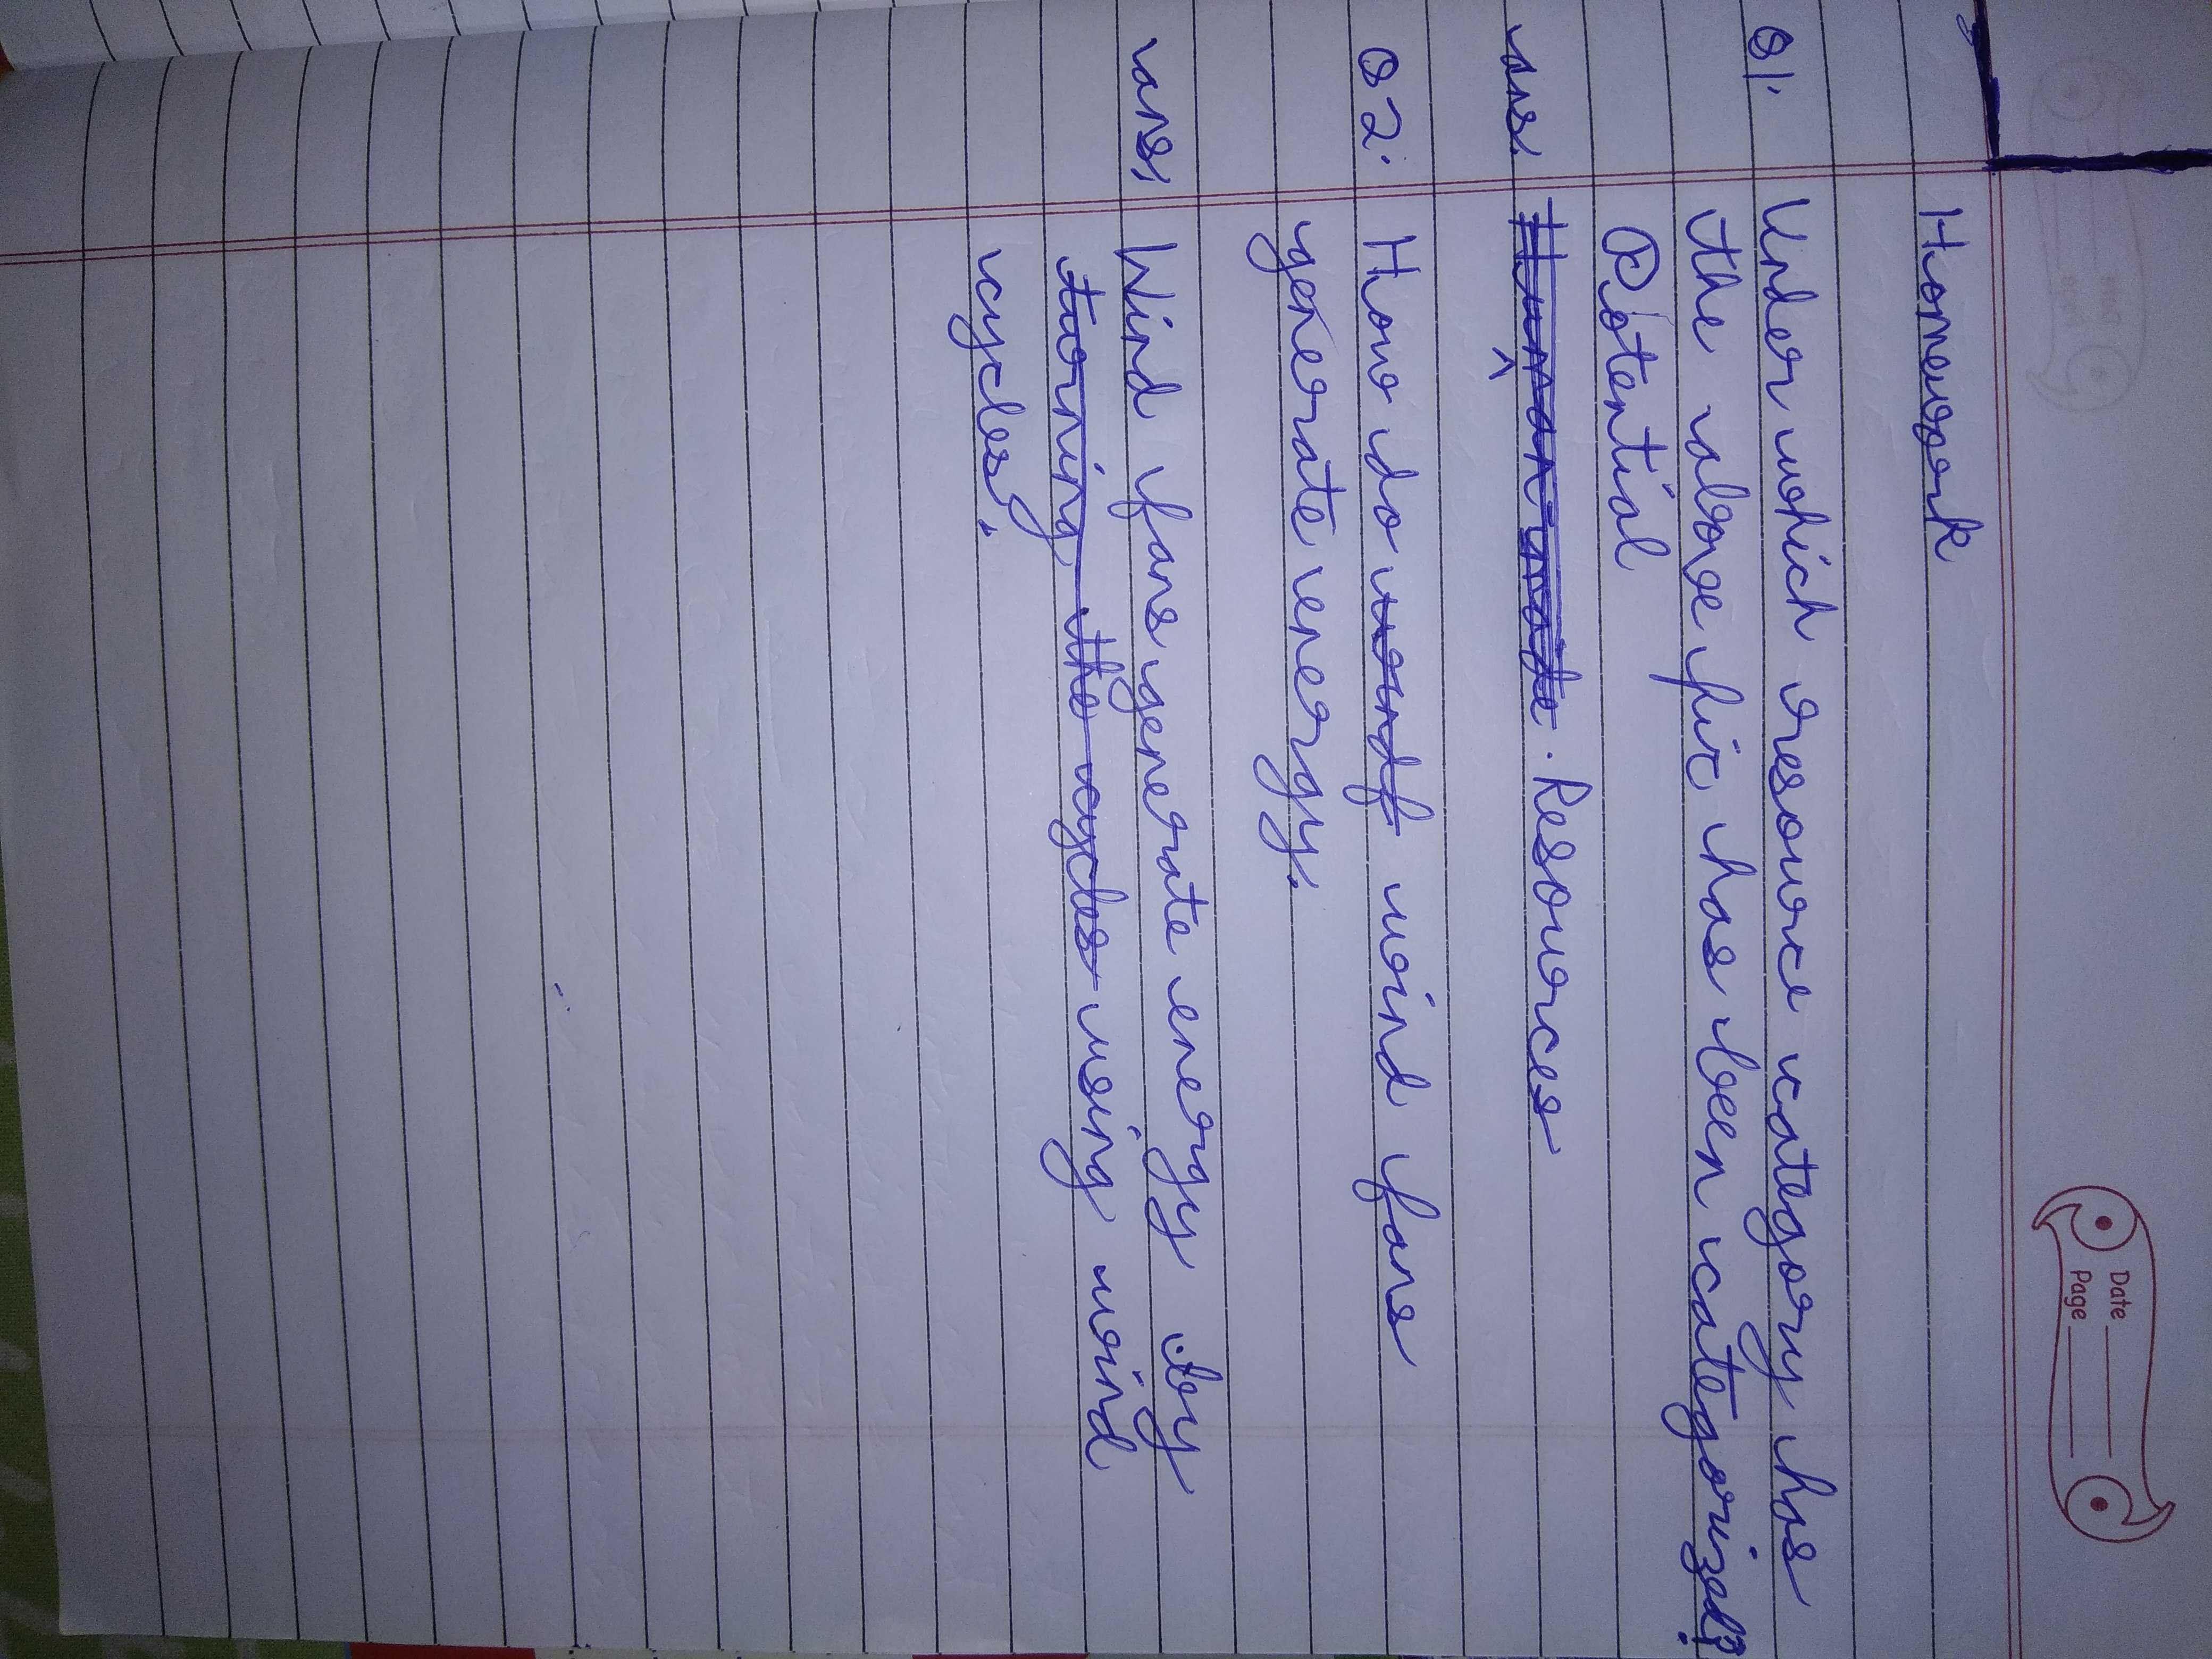 Date
Page
Homework
Q1. Under which resource category has
the above pic has been categorized?
Potential
ans. Human made. Resources
Q2. How do windf wind fans
generate energy.
ans, Wind fans generate energy by
turning the cycles using wind
cycles.